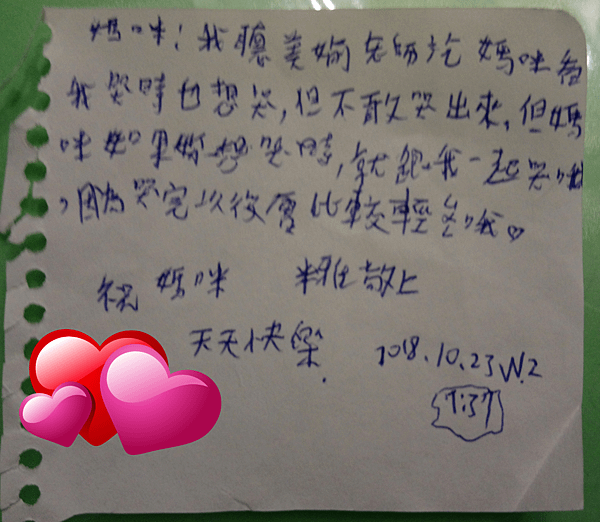 媽咪！我聽美媮老師說媽咪當
我哭時也想哭，但不敢哭出來，但媽
咪如果你想哭時，就跟我一起哭哦
，因為哭完以後會比較輕鬆哦♡
祝 媽咪
雅敬上
天天快樂.
2018.10.23 W.2
7:37